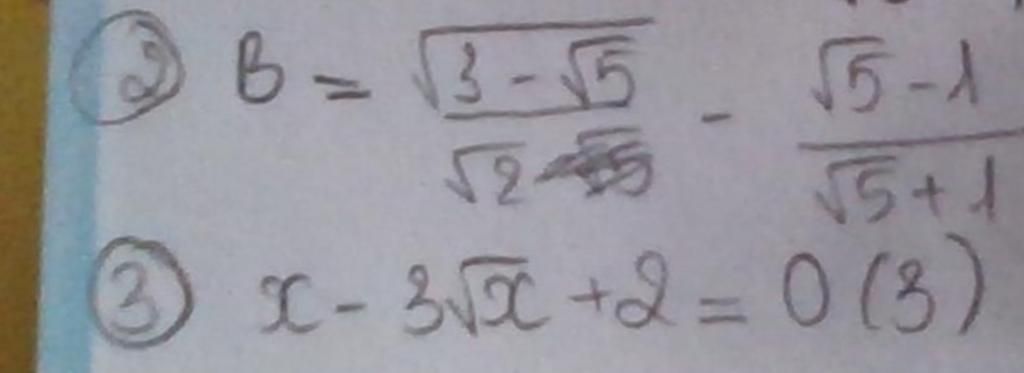 ② B = \frac{\sqrt{3 - \sqrt{5}}}{\sqrt{2}} - \frac{\sqrt{5} - 1}{\sqrt{5} + 1}
③ x - 3\sqrt{x} + 2 = 0 (3)